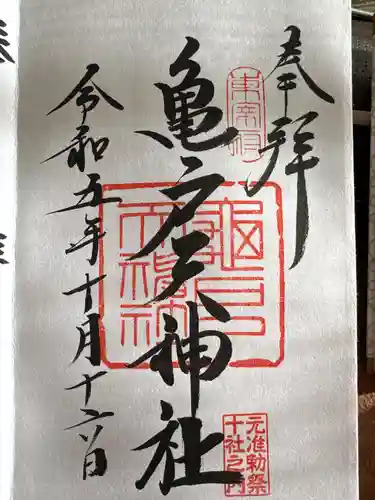 奉拝
東宰府
亀戸天神社
亀戸天神社
元准勅祭
十社之内
令和五年十月十六日